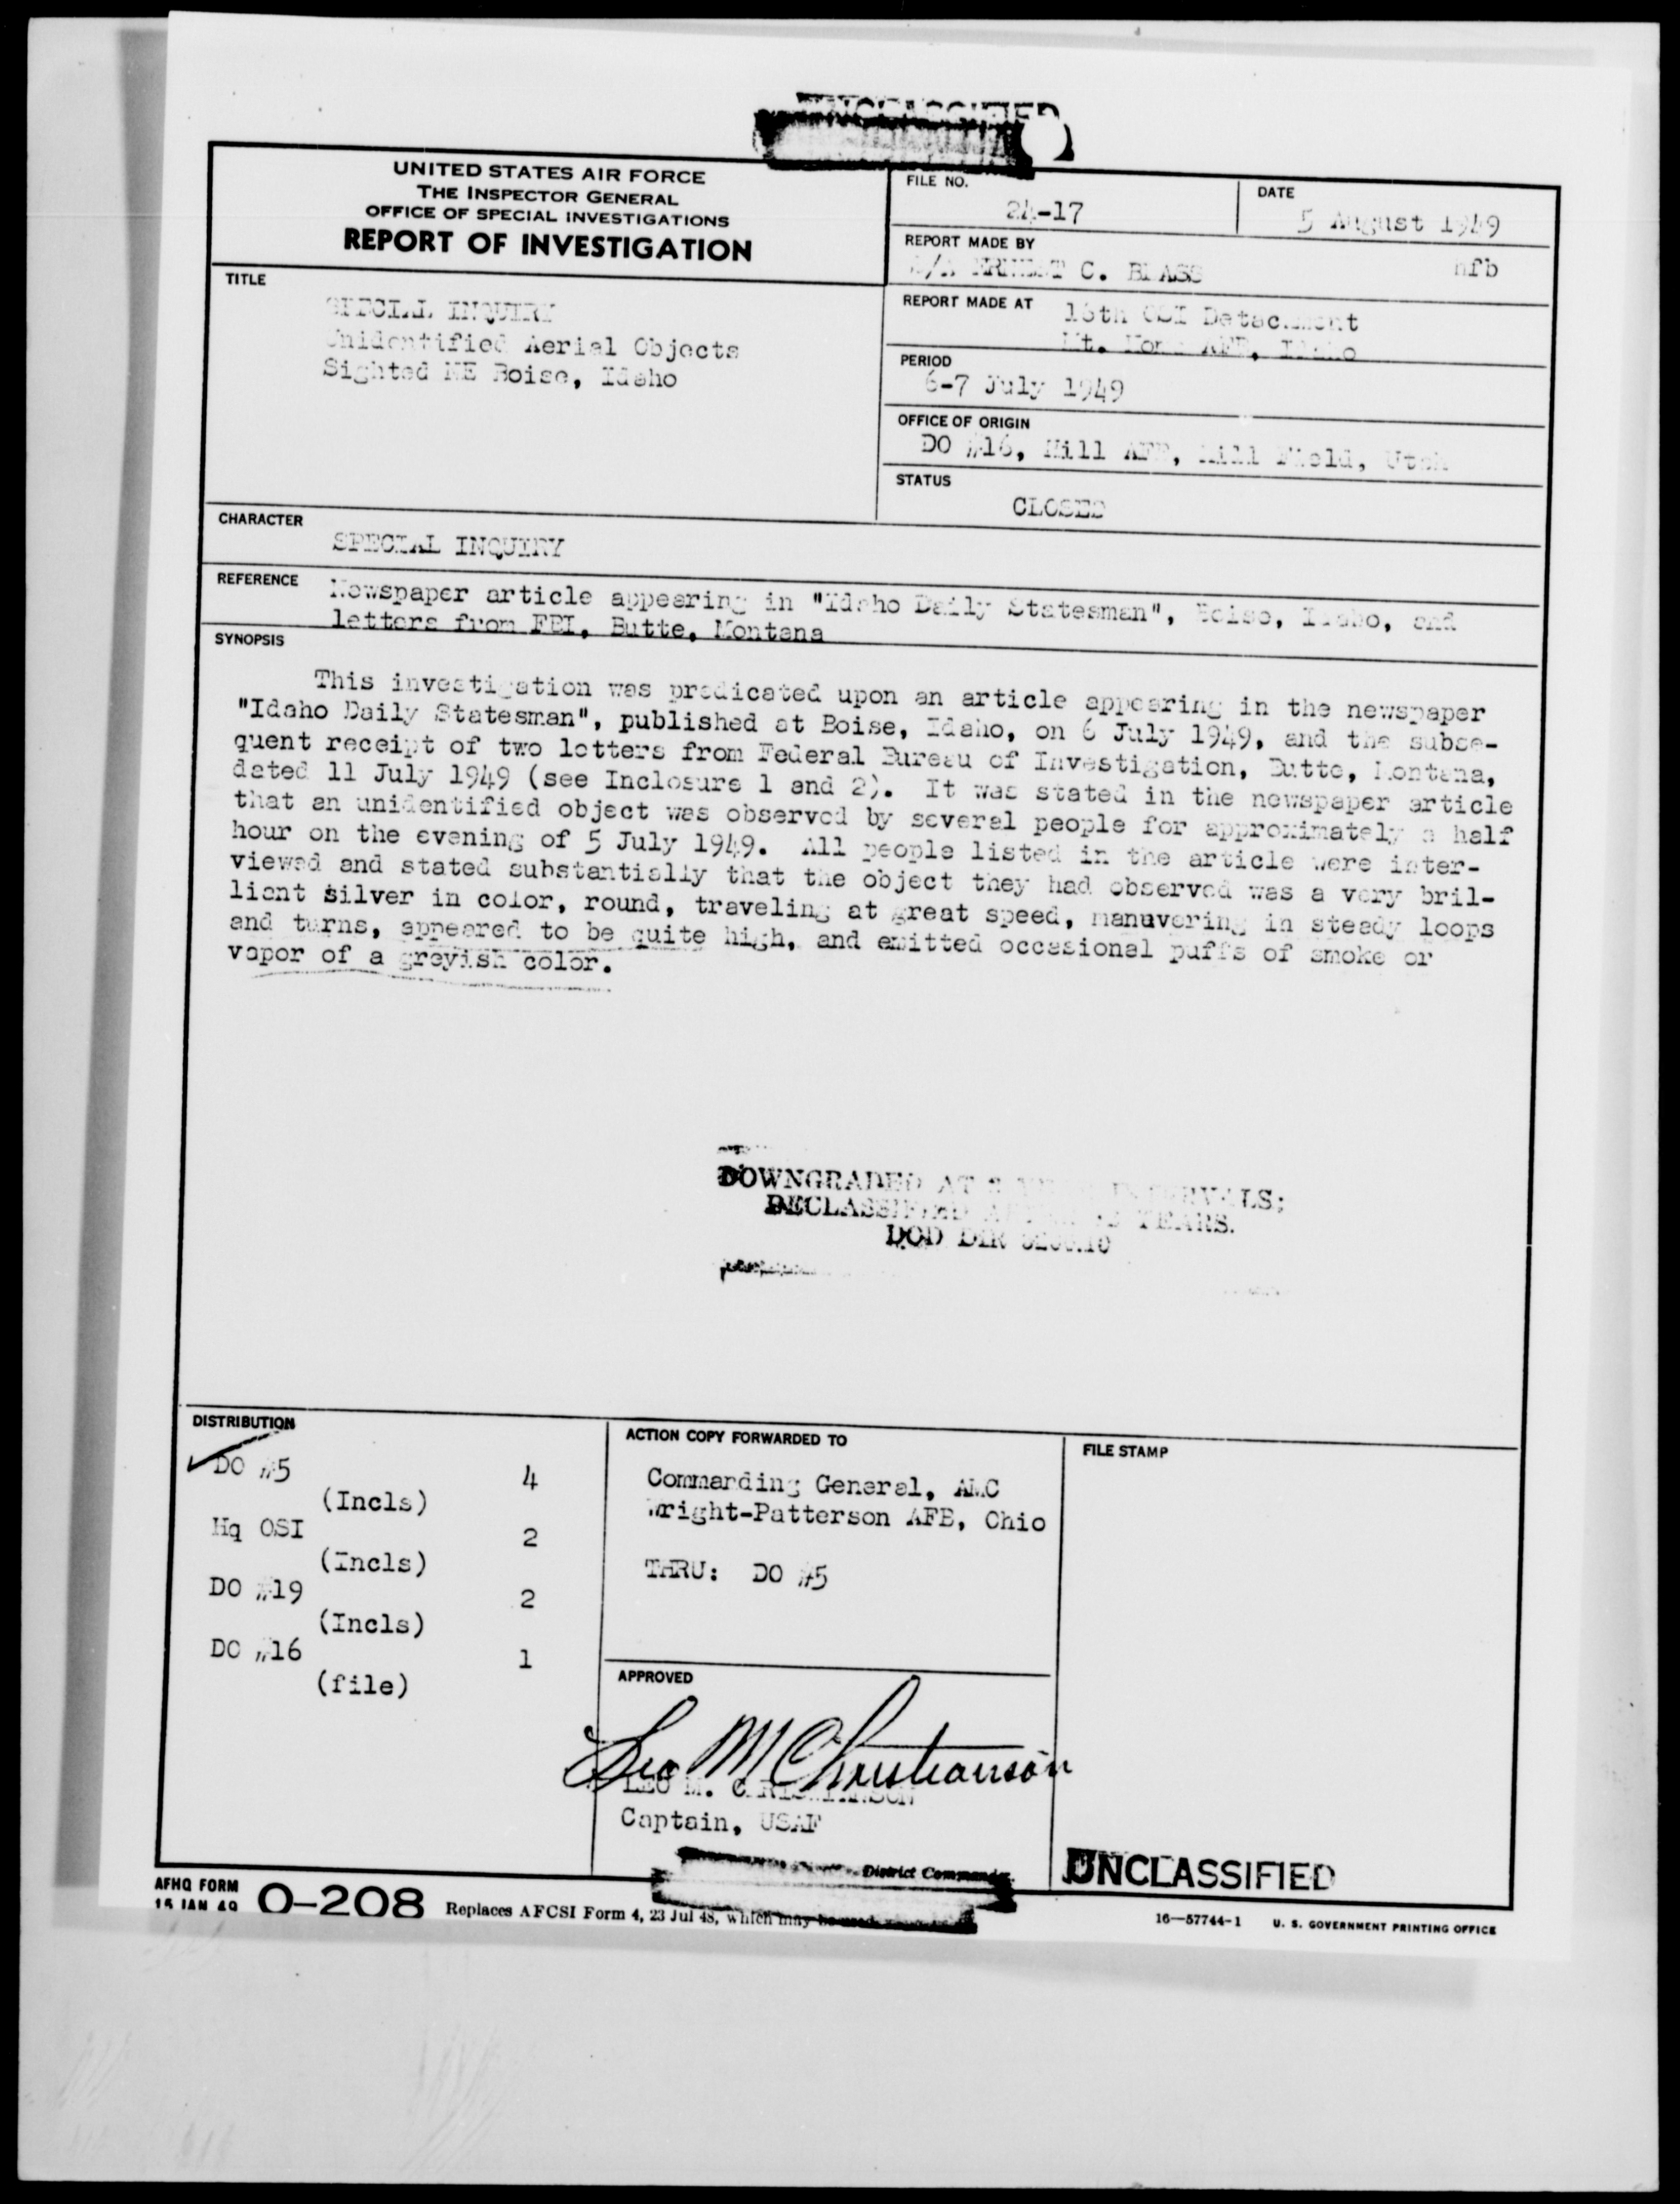 UNCLASSIFIED
UNITED STATES AIR FORCE
THE INSPECTOR GENERAL
OFFICE OF SPECIAL INVESTIGATIONS
REPORT OF INVESTIGATION
FILE NO.
24-17
DATE
5 August 1949
REPORT MADE BY
S/A ERNEST C. BLASS hfb
REPORT MADE AT
OSI Detachment
Mt. Home AFB, Idaho
PERIOD
6-7 July 1949
OFFICE OF ORIGIN
DO #16, Hill AFB, Hill Field, Utah
STATUS
CLOSED
TITLE
SPECIAL INQUIRY
Unidentified Aerial Objects
Sighted NE Boise, Idaho
CHARACTER
SPECIAL INQUIRY
REFERENCE
Newspaper article appearing in "Idaho Daily Statesman", Boise, Idaho, and
letters from FBI, Butte, Montana
SYNOPSIS
This investigation was predicated upon an article appearing in the newspaper
"Idaho Daily Statesman", published at Boise, Idaho, on 6 July 1949, and the subse-
quent receipt of two letters from Federal Bureau of Investigation, Butte, Montana,
dated 11 July 1949 (see Inclosure 1 and 2). It was stated in the newspaper article
that an unidentified object was observed by several people for approximately a half
hour on the evening of 5 July 1949. All people listed in the article were inter-
viewed and stated substantially that the object they had observed was a very bril-
liant silver in color, round, traveling at great speed, manuvering in steady loops
and turns, appeared to be quite high, and emitted occasional puffs of smoke or
vapor of a greyish color.
DOWNGRADED AT 3 YEAR INTERVALS;
DECLASSIFIED AFTER 12 YEARS.
DOD DIR 5200.10
DISTRIBUTION
DO #5 4
(Incls)
Hq OSI 2
(Incls)
DO #19 2
(Incls)
DO #16 1
(file)
ACTION COPY FORWARDED TO
Commanding General, AMC
Wright-Patterson AFB, Ohio
THRU: DO #5
FILE STAMP
APPROVED
Leo M Christianson
LEO M. CHRISTIANSON
Captain, USAF
District Commander
UNCLASSIFIED
AFHQ FORM
15 JAN 49 0-208 Replaces AFCSI Form 4, 23 Jul 48, which may be used.
16—57744-1 U. S. GOVERNMENT PRINTING OFFICE